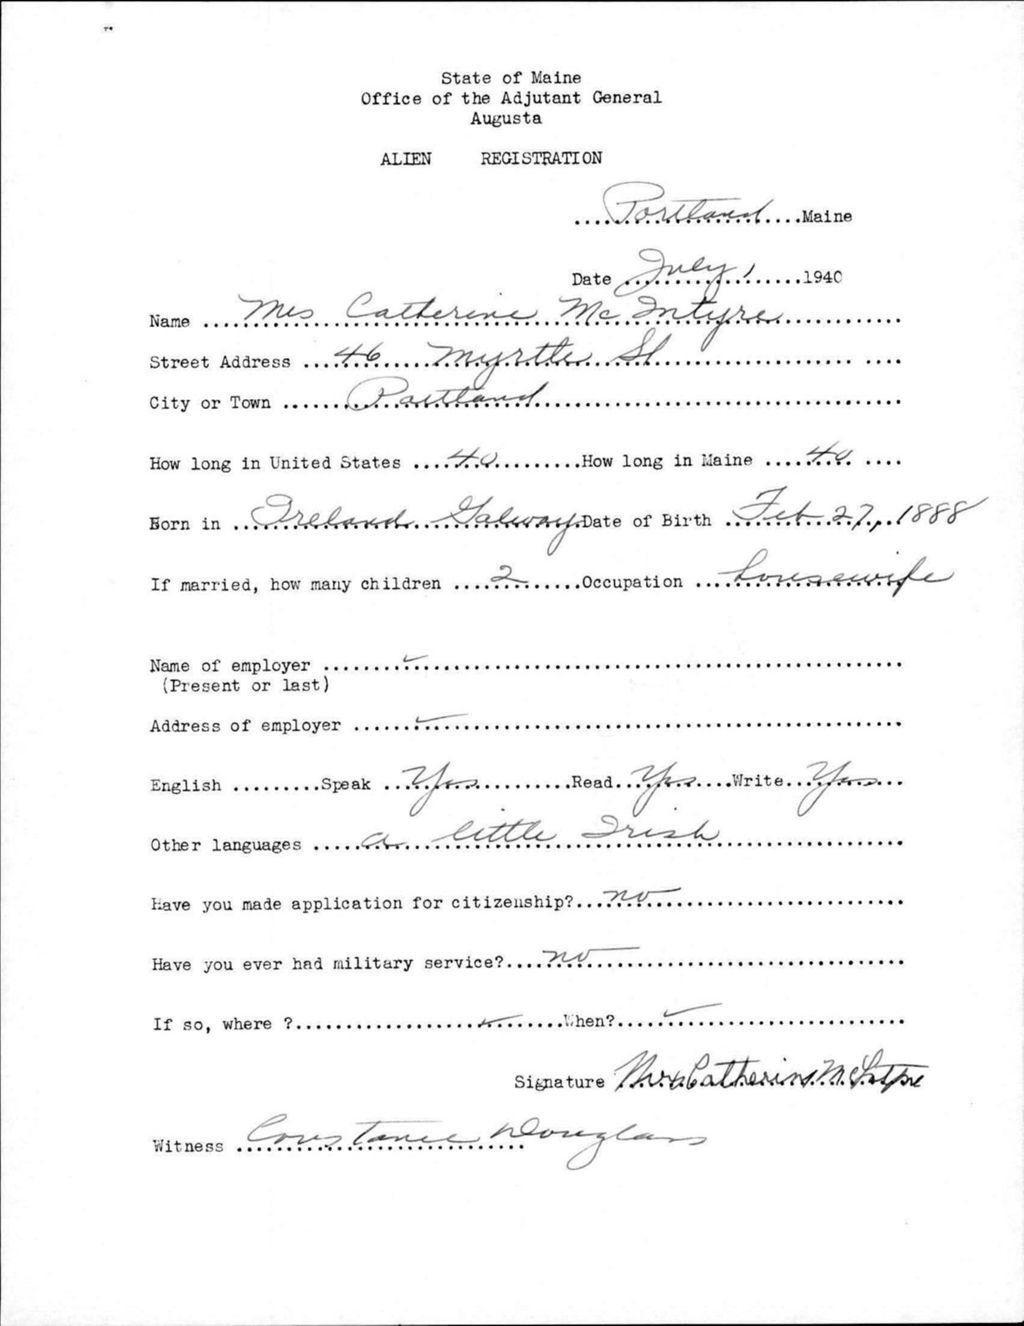 State of Maine
Office of the Adjutant General
Augusta
ALIEN REGISTRATION
Portland Maine
Date July 1 1940
Name Mrs Catherine McIntyre
Street Address 46 Myrtle St
City or Town Portland
How long in United States 40 How long in Maine 40
Born in Ireland Galway Date of Birth Feb 27, 1888
If married, how many children 2 Occupation housewife
Name of employer
(Present or last)
Address of employer
English Speak Yes Read Yes Write Yes
Other languages a little Irish
Have you made application for citizenship? no
Have you ever had military service? no
If so, where ? When?
Signature Mrs Catherine McIntyre
Witness Constance Douglass